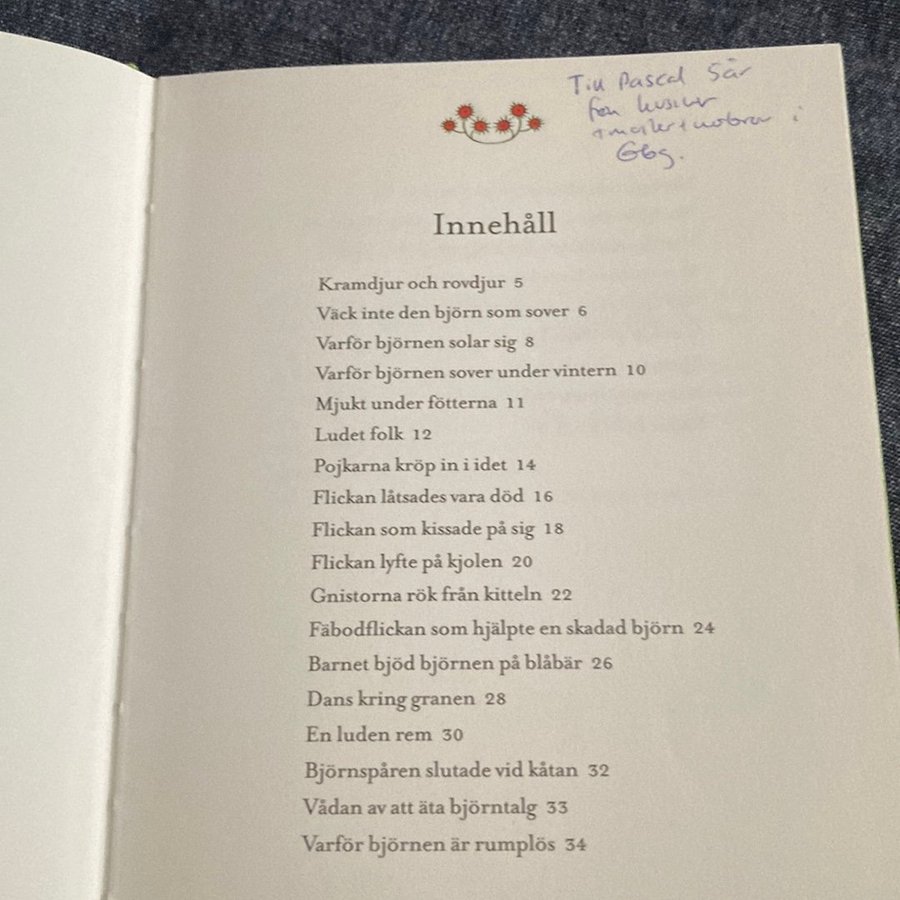 Till Pascal 5år
från kusiner
i
Gbg.
Innehåll
Kramdjur och rovdjur 5
Väck inte den björn som sover 6
Varför björnen solar sig 8
Varför björnen sover under vintern 10
Mjukt under fötterna 11
Ludet folk 12
Pojkarna kröp in i idet 14
Flickan låtsades vara död 16
Flickan som kissade på sig 18
Flickan lyfte på kjolen 20
Gnistorna rök från kitteln 22
Fäbodflickan som hjälpte en skadad björn 24
Barnet bjöd björnen på blåbär 26
Dans kring granen 28
En luden rem 30
Björnspåren slutade vid kåtan 32
Vådan av att äta björntalg 33
Varför björnen är rumplös 34